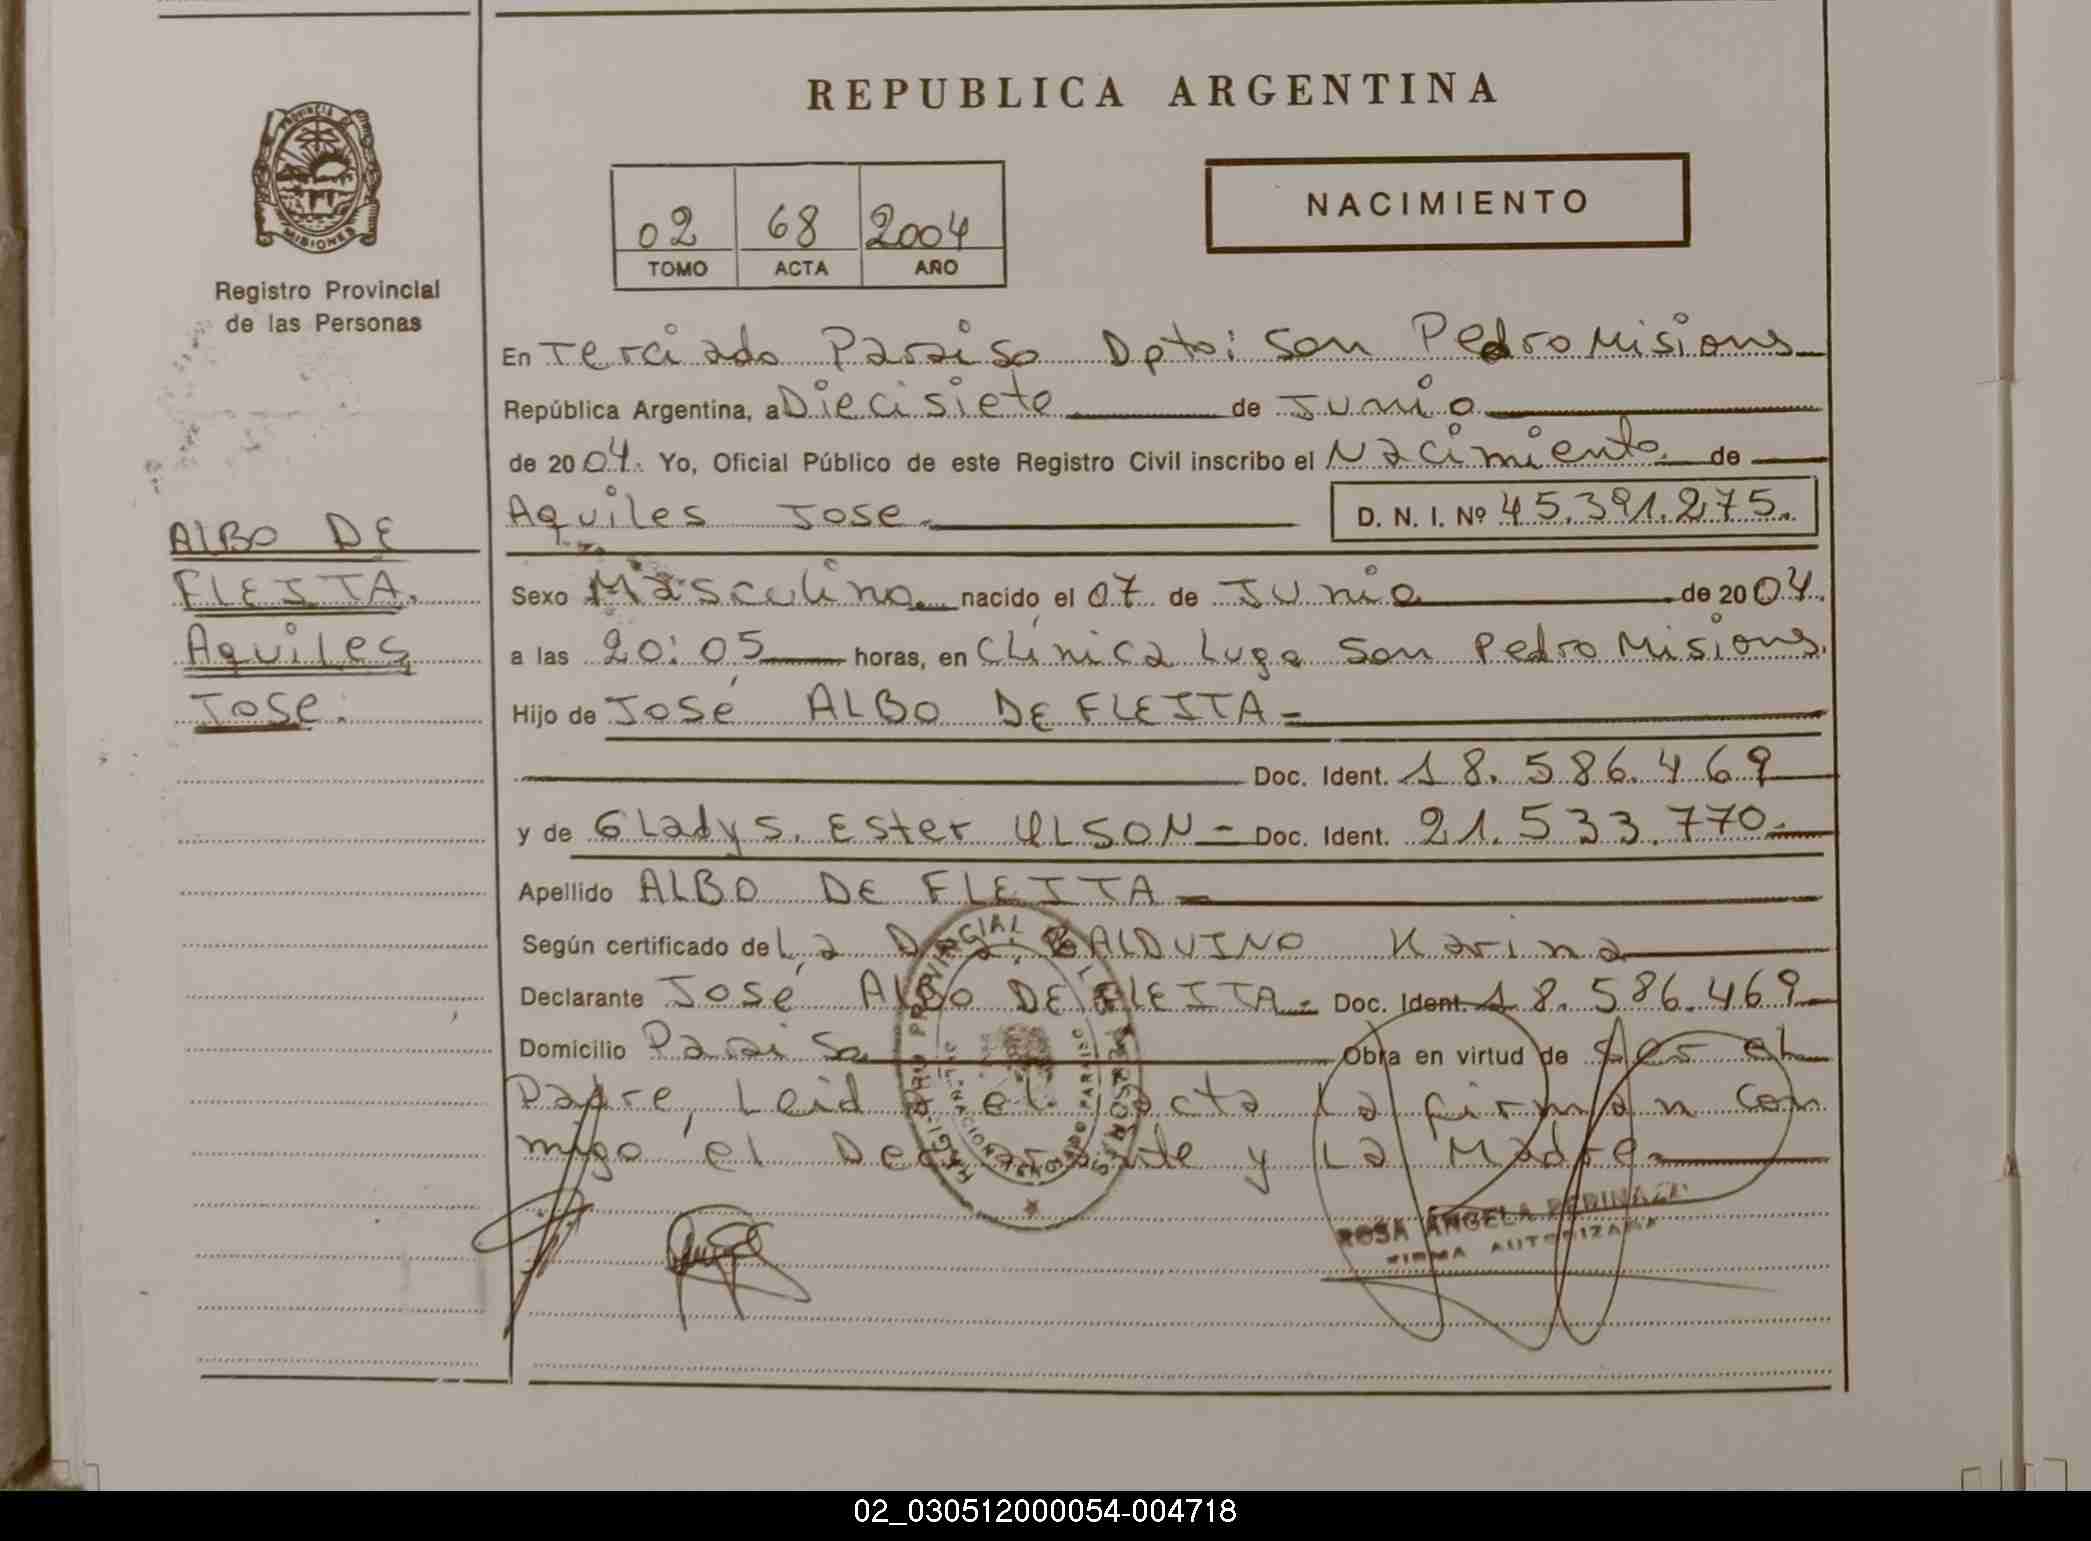 REPUBLICA ARGENTINA
PROVINCIA DE
MISIONES
Registro Provincial
de las Personas
02 68 2004
TOMO ACTA AÑO
NACIMIENTO
En Terciado Paraiso Dpto: San Pedro Misions
República Argentina, a Diecisiete de Junio
de 2004. Yo, Oficial Público de este Registro Civil inscribo el Nacimiento de
Aquiles Jose. D. N. I. Nº 45.391.275.
ALBO DE
FLEITA.
Aquiles
Jose.
Sexo Masculino. nacido el 07 de Junio de 2004.
a las 20:05 horas, en Clinica Lugo San Pedro Misions.
Hijo de José ALBO DE FLEITA
Doc. Ident. 18.586.469
y de Gladys. Ester ULSON - Doc. Ident. 21.533.770.
Apellido ALBO DE FLEITA
Según certificado de La Dra. BALDUINO Karina
Declarante José ALBO DE FLEITA - Doc. Ident. 18.586.469
Domicilio Paraiso Obra en virtud de Ser el
Padre, Leida el acta la firman con
migo el Declarante y La Madre.
ROSA ANGELA
FIRMA AUTORIZADA
02_030512000054-004718